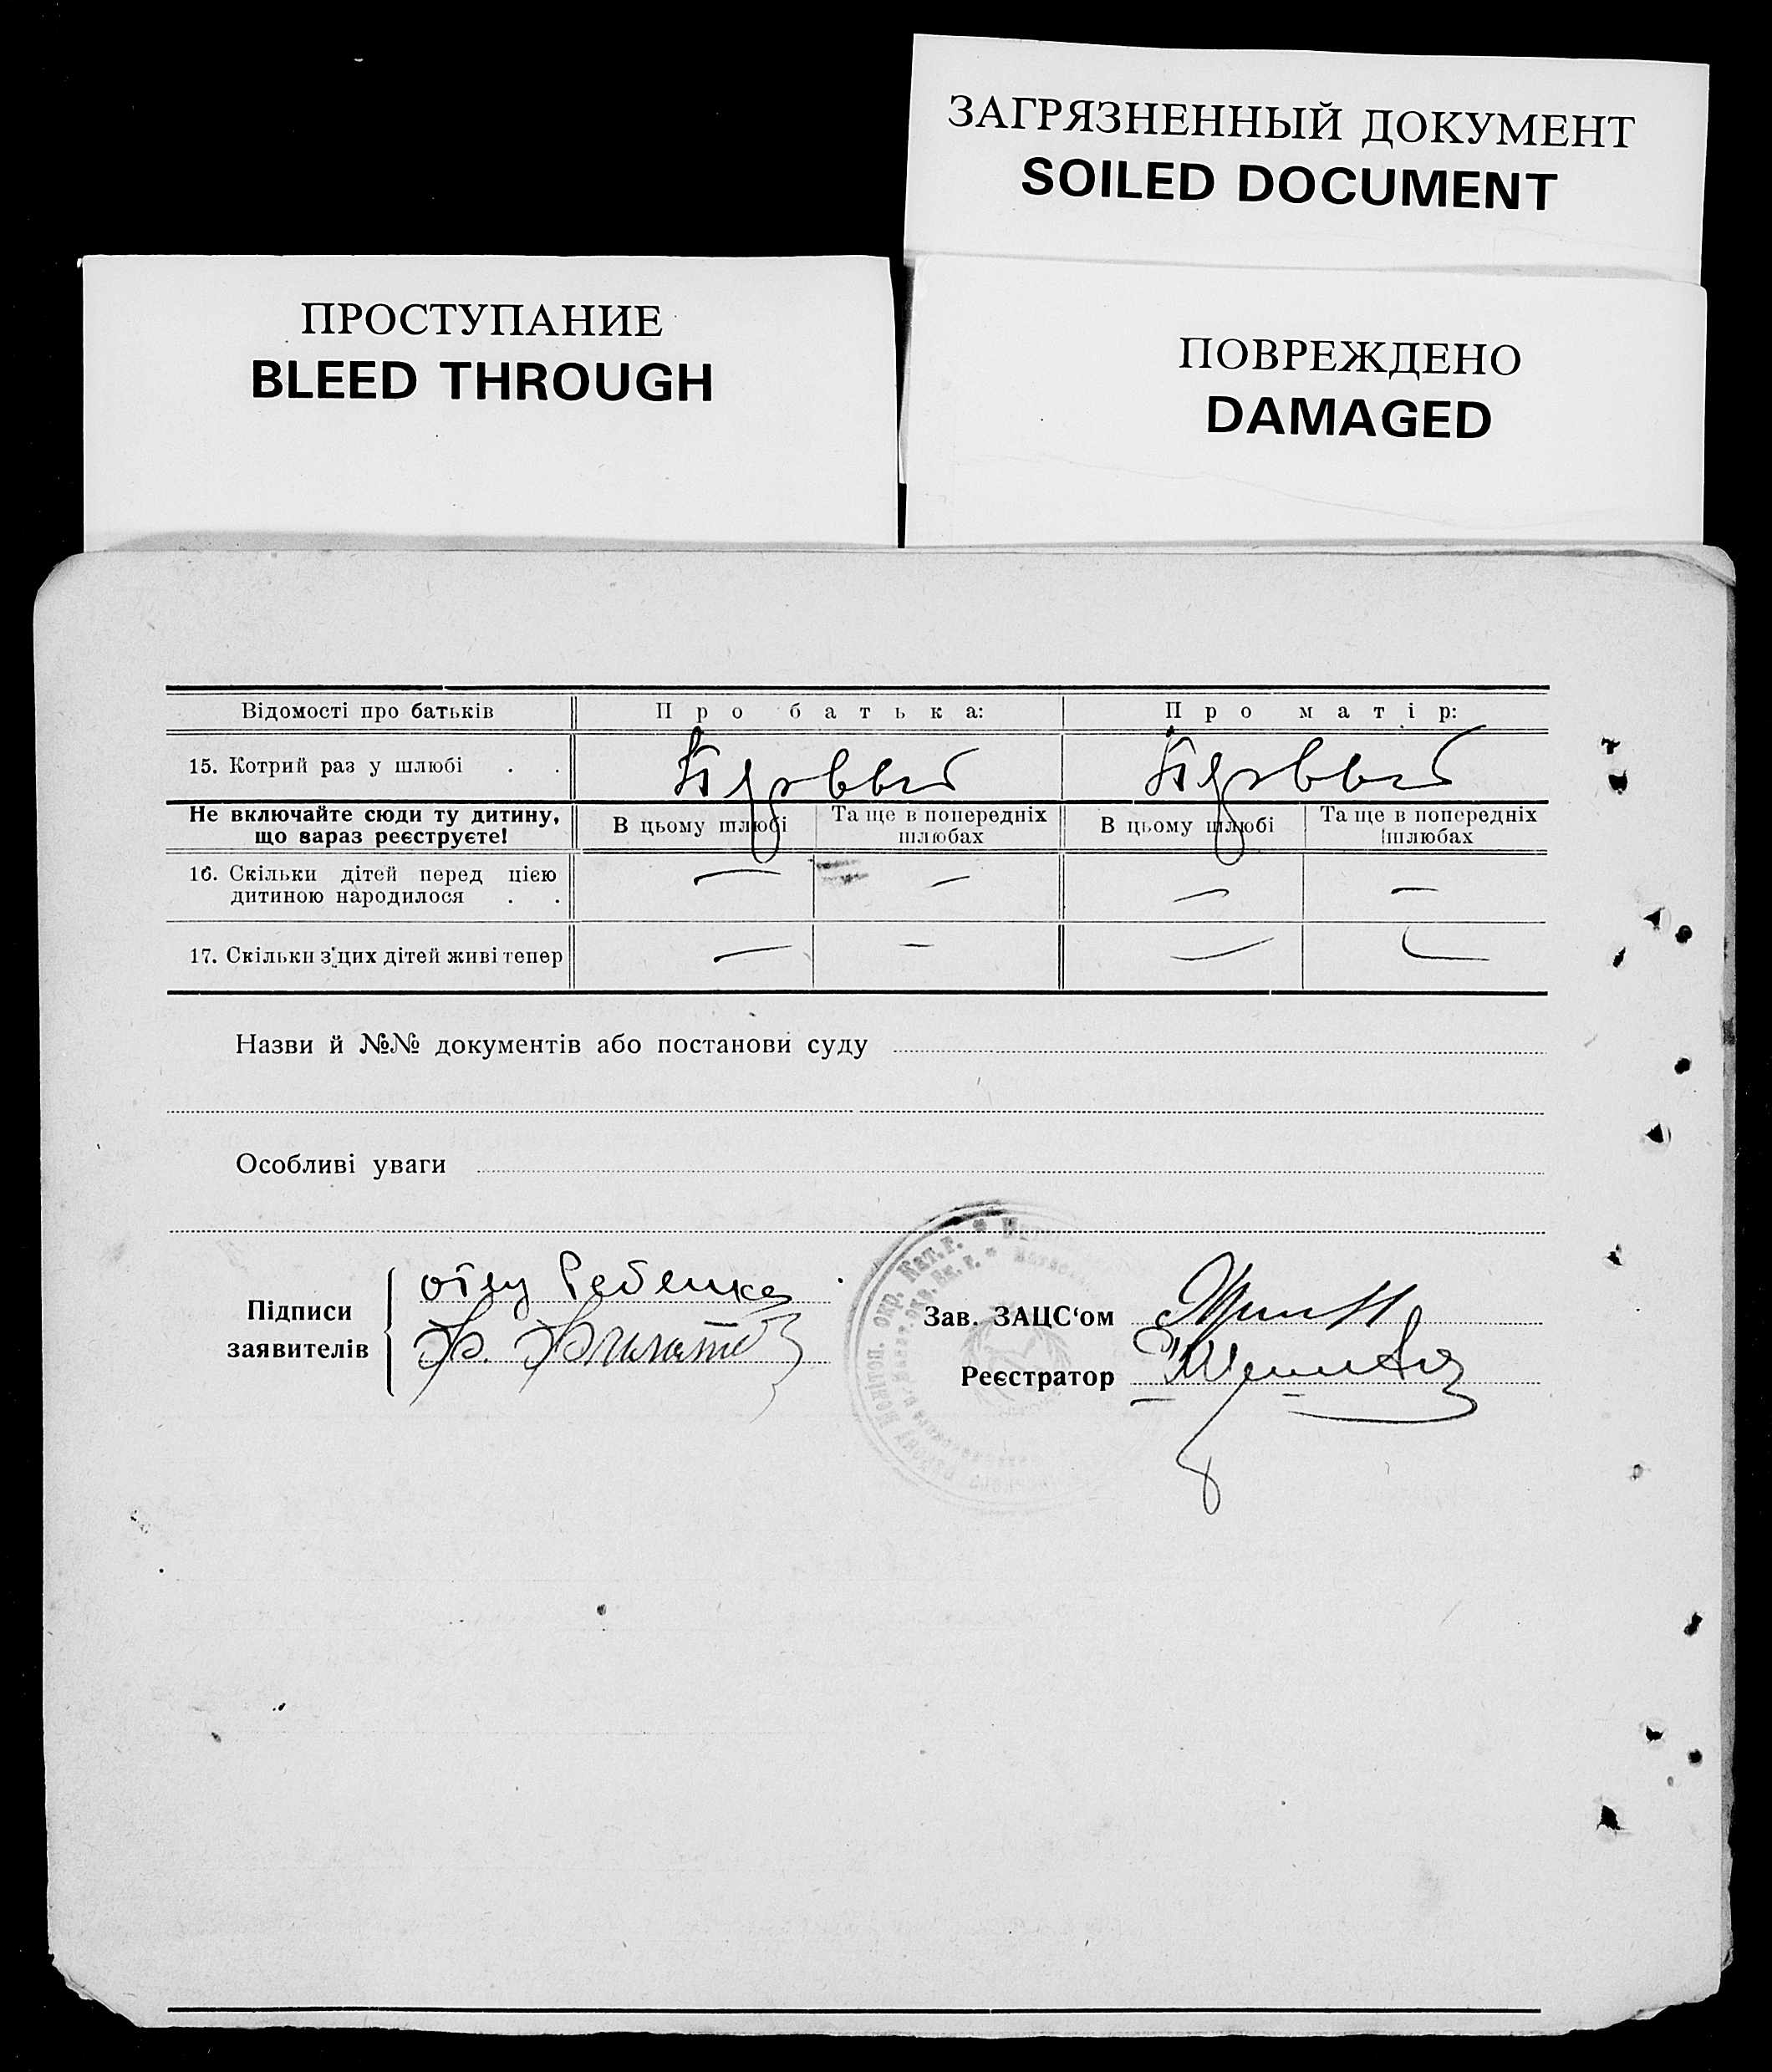 ЗАГРЯЗНЕННЫЙ ДОКУМЕНТ
SOILED DOCUMENT
ПРОСТУПАНИЕ
BLEED THROUGH
ПОВРЕЖДЕНО
DAMAGED
Відомості про батьків Про батька: Про матір:
15. Котрий раз у шлюбі . . Первый Первый
Не включайте сюди ту дитину, що зараз реєструєте! В цьому шлюбі Та ще в попередніх шлюбах В цьому шлюбі Та ще в попередніх шлюбах
16. Скільки дітей перед цією — — — —
дитиною народилося . .
17. Скільки з цих дітей живі тепер — — — —
Назви й №№ документів або постанови суду
Особливі уваги
Підписи заявителів
отец Ребенка
Ф.
Зав. ЗАЦС‘ом
Реєстратор